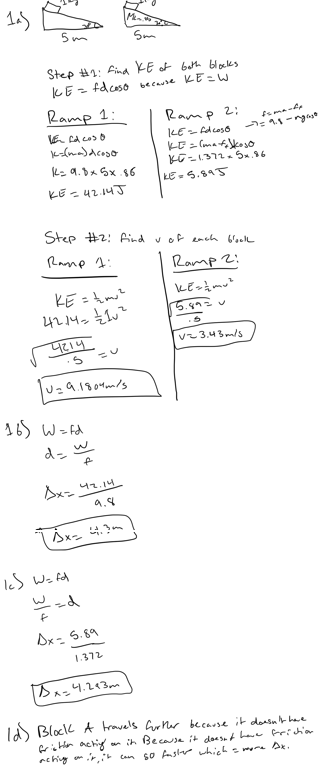 1a)
5m
5m
Step #1: find KE of both blocks
KE = fdcosθ because KE = W
Ramp 1:
KE = fdcosθ
K=(ma)dcosθ
K= 9.8 x 5 x .86
KE = 42.14J
Ramp 2:
KE = fdcosθ
f=ma-fx
= 9.8 - mgcosθ
KE = (ma-fx)dcosθ
KE = 1.372 x 5 x .86
KE = 5.89J
Step #2: find v of each block
Ramp 1:
KE = ½mv²
42.14 = ½1v²
√4214/.5 = v
v = 9.1804m/s
Ramp 2:
KE = ½mv²
√5.89/.5 = v
v = 3.43m/s
1b) W = fd
d = W/f
Δx = 42.14/9.8
Δx = 4.3m
1c) W = fd
W/f = d
Δx = 5.89/1.372
Δx = 4.293m
1d) Block A travels further because it doesn't have
friction acting on it. Because it doesn't have friction
acting on it, it can go faster which = more Δx.